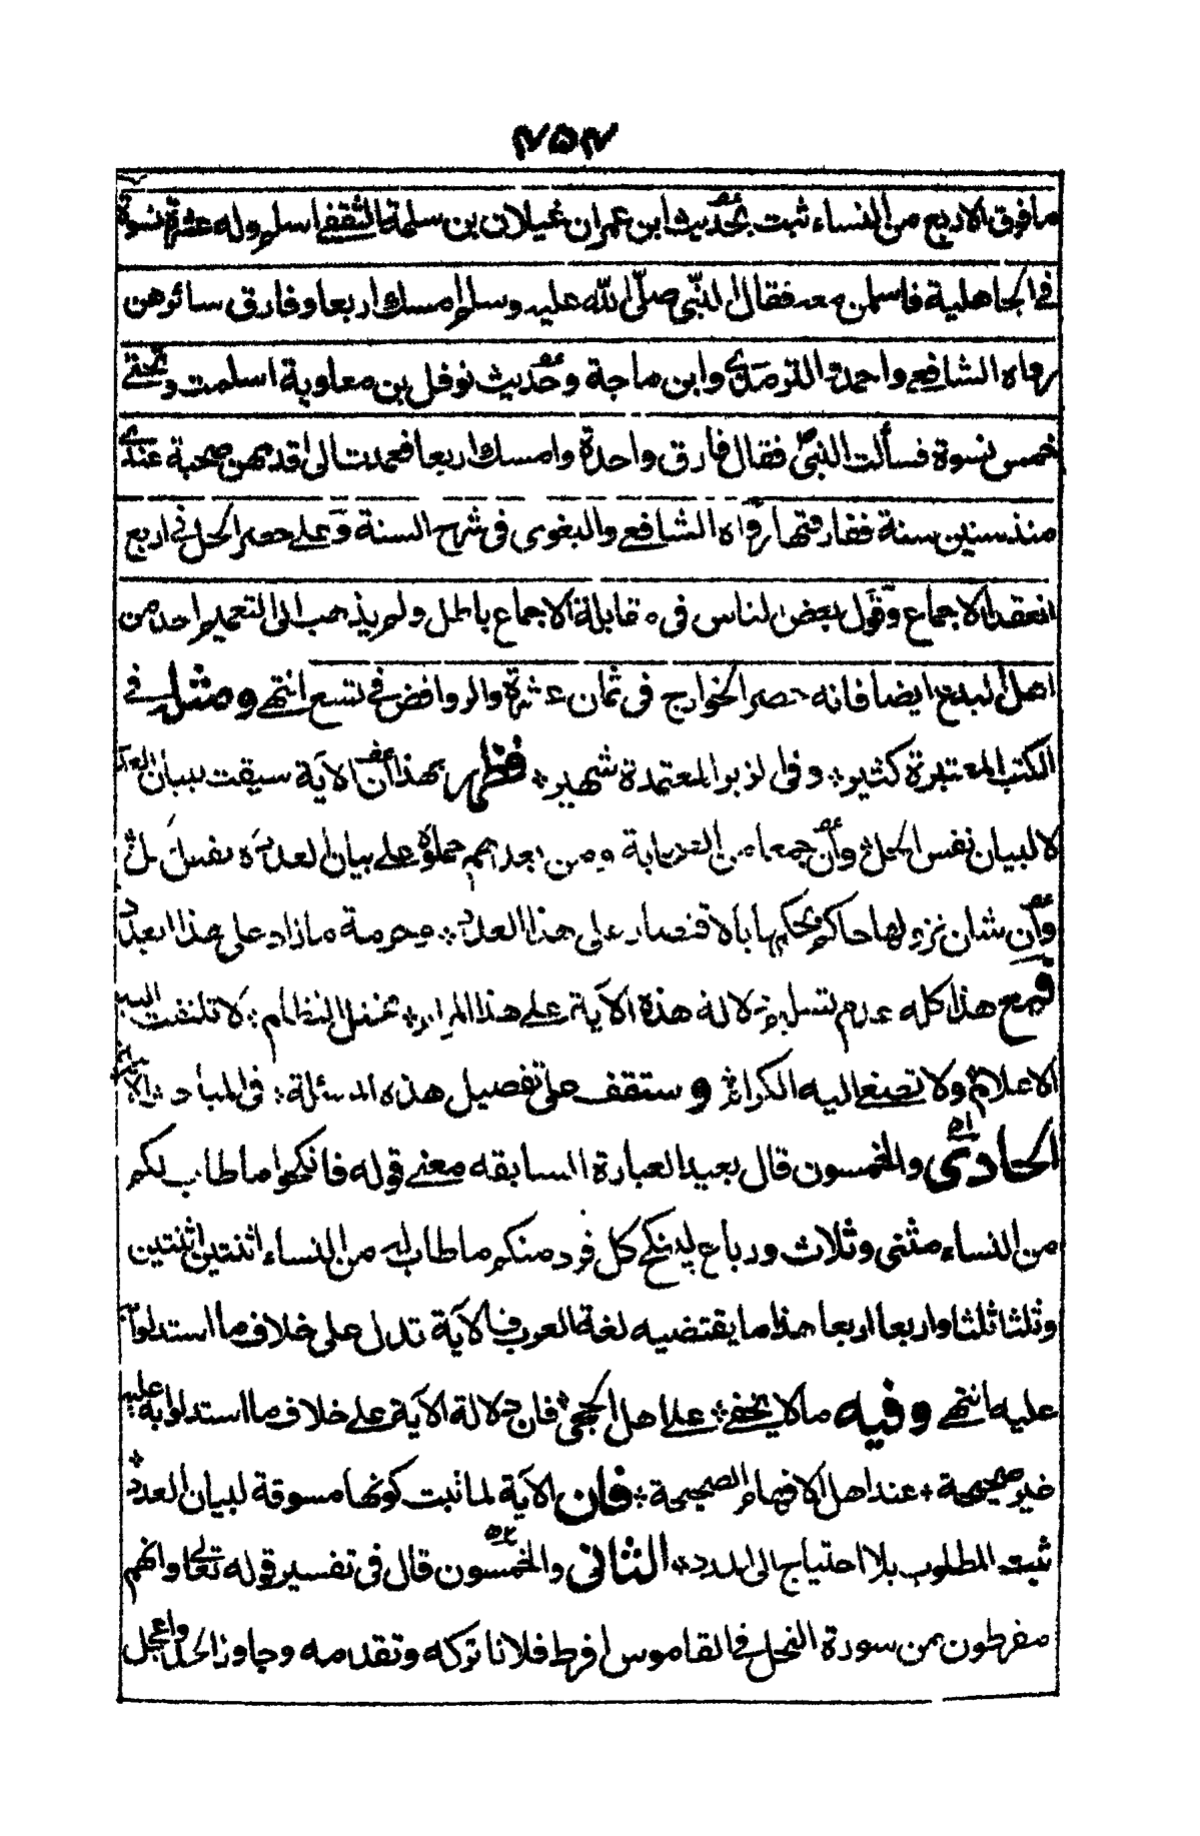 ۲۵۲
مافوق الاربع من النساء ثبت بحديث ابن عمر ان غيلان بن سلمة الثقفي اسلم وله عشرة نسوة
في الجاهلية فاسلمن معه فقال النبي صلى الله عليه وسلم امسك اربعا وفارق سائرهن
رواه الشافعي واحمد والترمذي وابن ماجة وحديث نوفل بن معاوية اسلمت وتحتي
خمس نسوة فسألت النبي فقال فارق واحدة وامسك اربعا فعمدت الى اقدمهن صحبة عندي
منذ ستين سنة ففارقتها رواه الشافعي والبغوي في شرح السنة وعلى حصر الحل في اربع
انعقد الاجماع وقول بعض الناس في مقابلة الاجماع باطل ولم يذهب الى التعميم احد من
اهل البدع ايضا فانه حصر الخوارج في ثمان عشرة والروافض في تسع انتهى ومثله في
الكتب المعتبرة كثير؞ وفي الزبر المعتمدة شهير؞ فظهر بهذا ان الاية سيقت لبيان العدد
لا لبيان نفس الحل وان جمعا من الصحابة ومن بعدهم حملوه على بيان العدد لا نفس الحل
وان شان نزولها حاكم بحكمها بالاقتصار على هذا العدد؞ وحرمة مازاد على هذا العدد
فمع هذا كله عدم تسليم دلالة هذه الاية على هذا المرام؞ مخفل النظام؞ لا تلتفت اليه
الاعلام؞ ولا تصغي اليه الكرام؞ وستقف على تفصيل هذه المسئلة؞ في المباحث الاتية
الحادي ۵۱ والخمسون قال بعيد العبارة السابقه معنى قوله فانكحوا ما طاب لكم
من النساء مثنى وثلاث ورباع لينكح كل فرد منكم ما طاب له من النساء اثنتين اثنتين
وثلثا ثلثا واربعا اربعا هذا ما يقتضيه لغة العرب فالاية تدل على خلاف ما استدلوا به
عليه انتهى وفيه ما لا يخفى؞ على اهل الحجى؞ فان دلالة الاية على خلاف ما استدلوا به عليه
غير صحيحة؞ عند اهل الافهام الصحيحة؞ فان الاية لما ثبت كونها مسوقة لبيان العدد؞
ثبت المطلوب بلا احتياج الى المدد؞ الثاني ۵۲ والخمسون قال في تفسير قوله تعالى وانهم
مفرطون من سورة النحل في القاموس افرط فلانا تركه وتقدمه وجاوز الحد واعجل